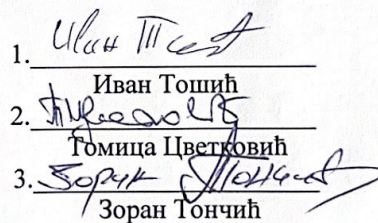 1. Иван Тошић
Иван Тошић
2.
Томица Цветковић
3. Зоран Тончић
Зоран Тончић